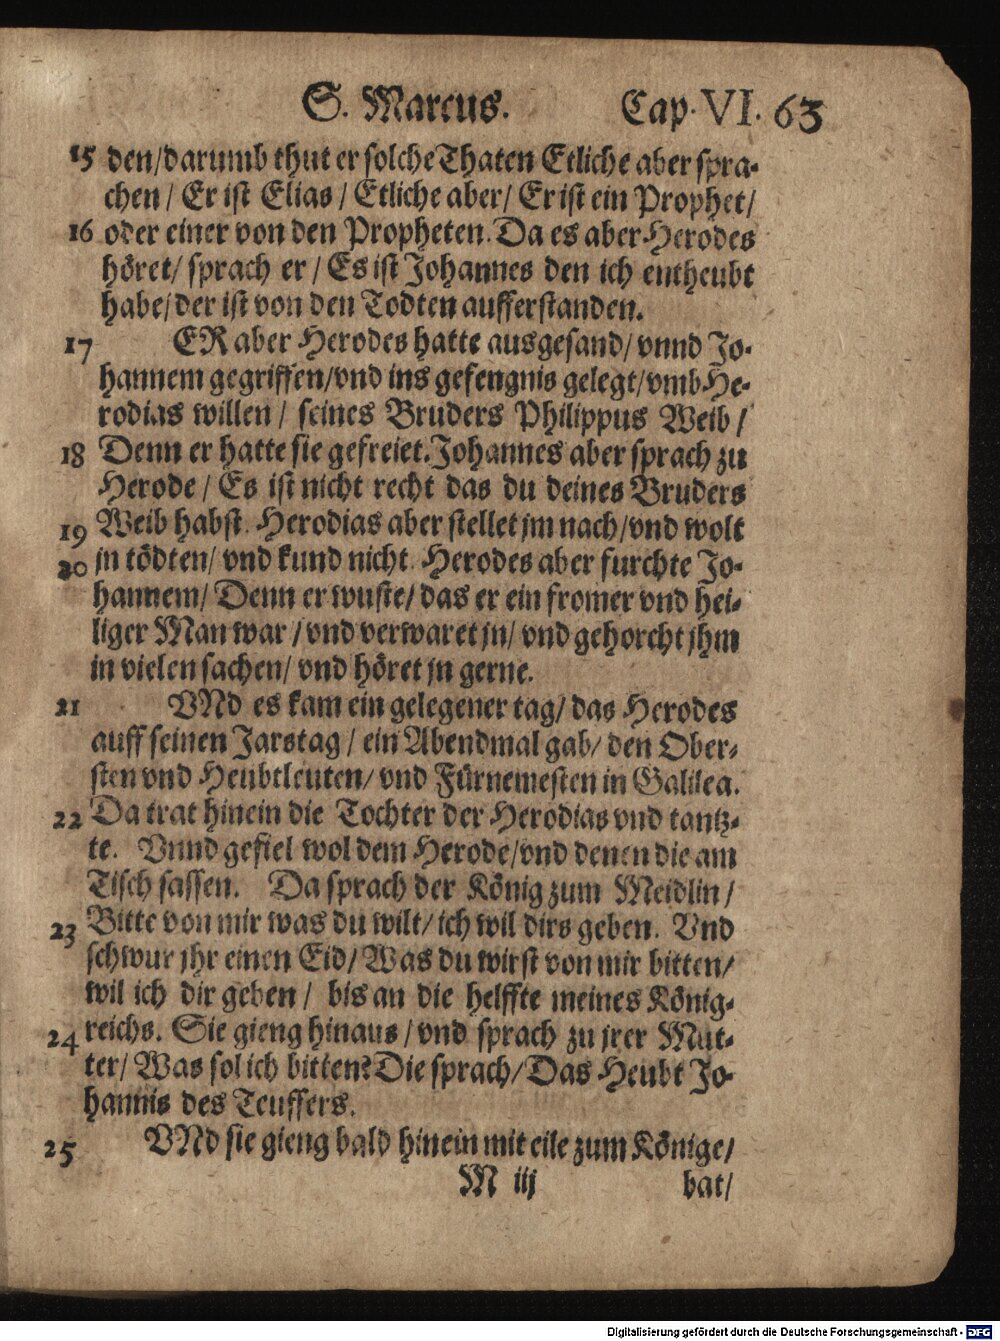 S. Marcus. Cap. VI. 63
15 den/darumb thut er solche Thaten Etliche aber spra-
chen / Er ist Elias / Etliche aber/ Er ist ein Prophet/
16 oder einer von den Propheten. Da es aber Herodes
höret/ sprach er / Es ist Johannes den ich entheubt
habe/ der ist von den Todten aufferstanden.
17 ER aber Herodes hatte ausgesand/ vnnd Jo-
hannem gegriffen/vnd ins gefengnis gelegt/vmb He-
rodias willen / seines Bruders Philippus Weib /
18 Denn er hatte sie gefreiet. Johannes aber sprach zu
Herode / Es ist nicht recht das du deines Bruders
19 Weib habst. Herodias aber stellet jm nach/vnd wolt
20 jn tödten/ vnd kund nicht. Herodes aber furchte Jo-
hannem/ Denn er wuste/ das er ein fromer vnd hei-
liger Man war / vnd verwaret jn/ vnd gehorcht jhm
in vielen sachen/ vnd höret jn gerne.
21 VNd es kam ein gelegener tag/ das Herodes
auff seinen Jarstag / ein Abendmal gab/ den Ober-
sten vnd Heubtleuten/ vnd Fürnemesten in Galilea.
22 Da trat hinein die Tochter der Herodias vnd tantz-
te. Vnnd gefiel wol dem Herode/vnd denen die am
Tisch sassen. Da sprach der König zum Meidlin /
23 Bitte von mir was du wilt/ ich wil dirs geben. Vnd
schwur jhr einen Eid/ Was du wirst von mir bitten/
wil ich dir geben / bis an die helffte meines König-
24 reichs. Sie gieng hinaus / vnd sprach zu jrer Mut-
ter/ Was sol ich bitten? Die sprach/ Das Heubt Jo-
hannis des Teuffers.
25 VNd sie gieng bald hinein mit eile zum Könige/
M iij bat/
Digitalisierung gefördert durch die Deutsche Forschungsgemeinschaft - DFG